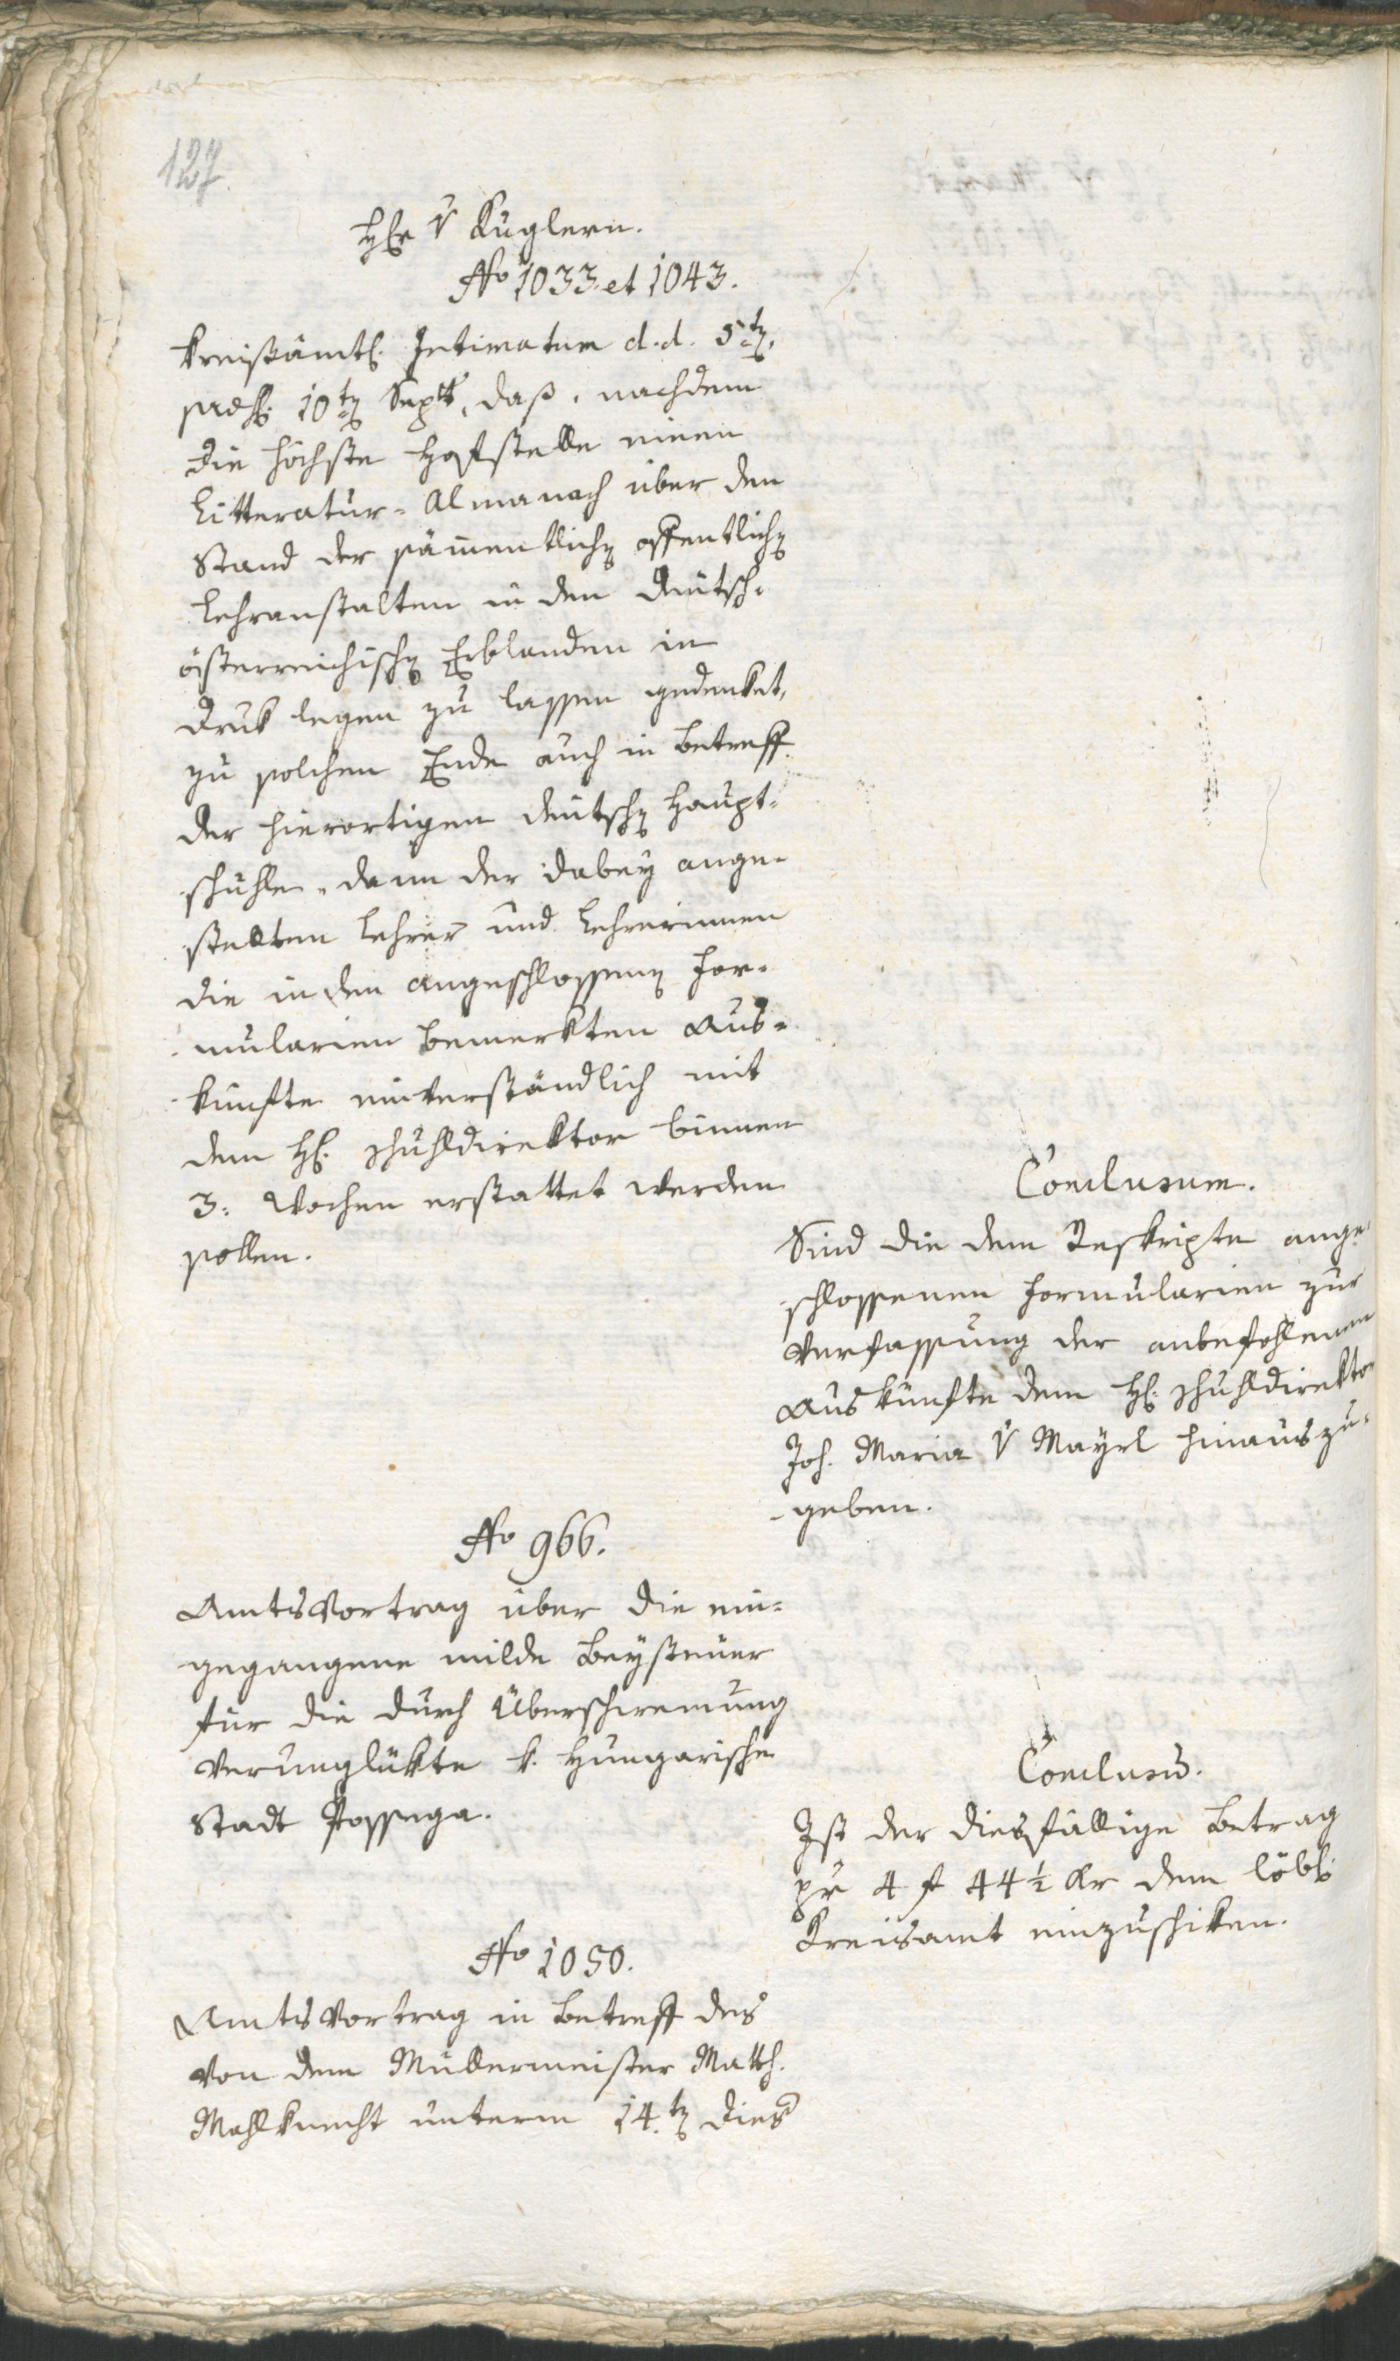 127.
Hr v Kuglern.
No 1033 et 1043.
Kreisämtl. Intimatum d. d. 5tn,
10tn Septb, daß, nachdem
die höchste Hofstelle einen
Litteratur-Almanach über den
Stand der sämentlichn offentlichn
Lehranstalten in den deutsch-
österreichischn Erblanden in
Druk legen zu lassen gedenket,
zu solchem Ende auch in Betreff
der hierortigen deutschn Haupt-
schuhle, dann der dabey ange-
stellten Lehrer und Lehrerinnen
die in den angeschlossenn For-
mularien bemerkten Aus-
künfte einverständlich mit
dem H. Schuhldirektor binnen
3: Wochen erstattet werden
sollen.
Conclusum.
Sind die dem Reskripte ange-
schlossenen Formularien zur
Verfassung der anbefohlenen
Auskünfte dem H. Schuhldirektor
Joh. Maria v Mayrl hinauszu-
geben.
No 966.
Amtsvortrag über die ein-
gegangene milde Beysteuer
für die durch Überschwemung
verunglükte k. Hungarische
Stadt Possega.
Conclusu.
Ist der diesfällige Betrag
pr 4 f 44 1/2 kr dem löbl.
Kreisamt einzuschiken.
No 1050.
Amtsvortrag in Betreff des
von dem Müllermeister Matth.
Mahlknecht unterm 14.tn dies